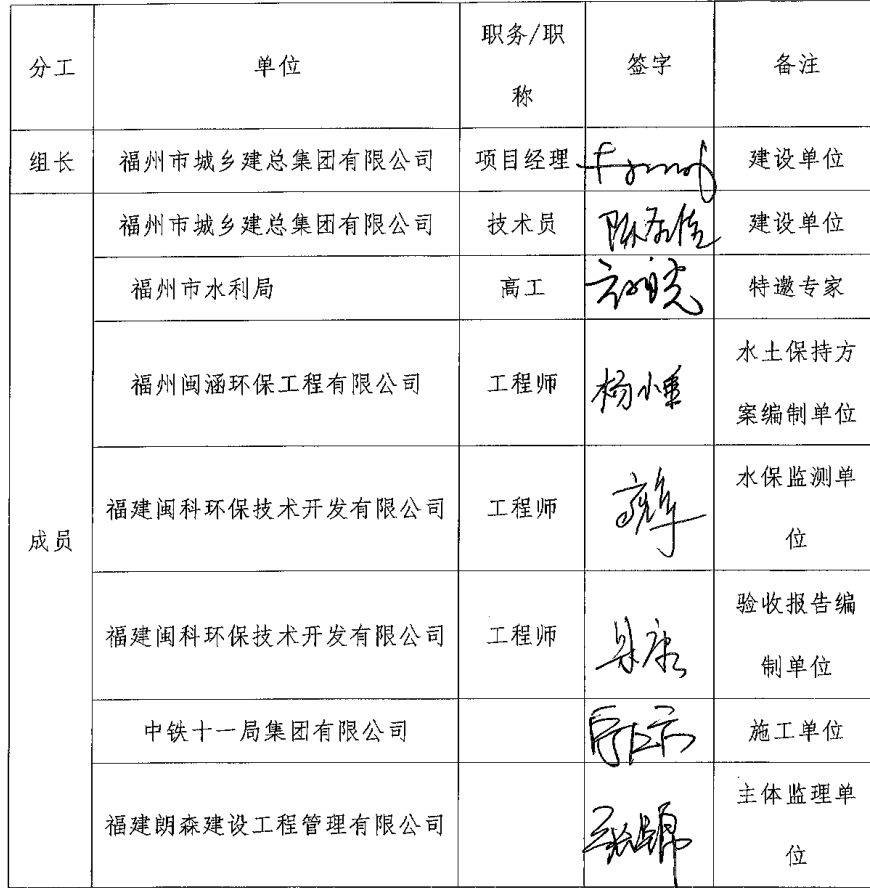 分工 单位 职务/职称 签字 备注
组长 福州市城乡建总集团有限公司 项目经理 建设单位
福州市城乡建总集团有限公司 技术员 建设单位
福州市水利局 高工 特邀专家
福州闽涵环保工程有限公司 工程师 水土保持方
案编制单位
福建闽科环保技术开发有限公司 工程师 水保监测单
位
成员
福建闽科环保技术开发有限公司 工程师 验收报告编
制单位
中铁十一局集团有限公司 施工单位
福建朗森建设工程管理有限公司 主体监理单
位